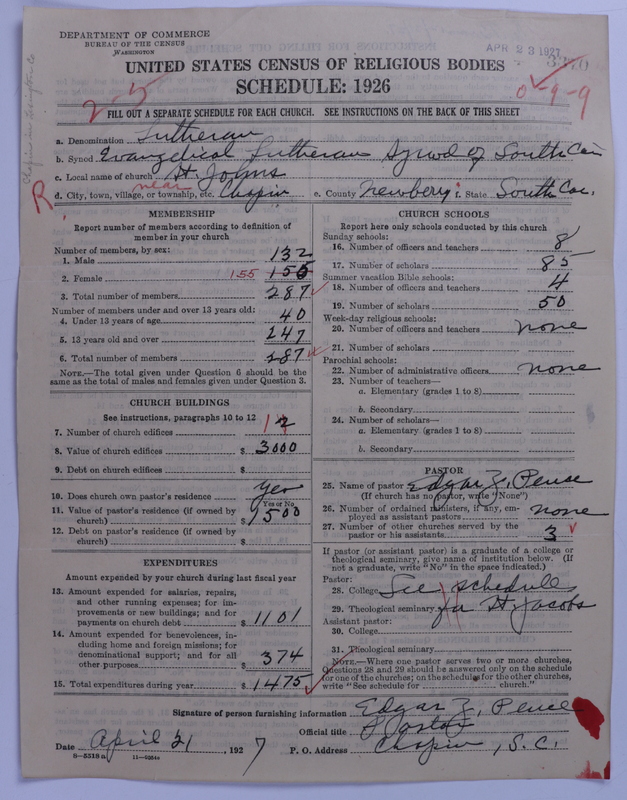 DEPARTMENT OF COMMERCE
BUREAU OF THE CENSUS
WASHINGTON
APR 23 1927
UNITED STATES CENSUS OF RELIGIOUS BODIES
SCHEDULE: 1926
2-5
0-9-9
FILL OUT A SEPARATE SCHEDULE FOR EACH CHURCH. SEE INSTRUCTIONS ON THE BACK OF THIS SHEET
a. Denomination Lutheran
b. Synod Evangelical Lutheran Synod of South Car
c. Local name of church St. Johns
R
d. City, town, village, or township, etc. near Chapin e. County Newberry f. State South Car.
MEMBERSHIP
Report number of members according to definition of
member in your church
Number of members, by sex:
1. Male 132
2. Female 155 155
3. Total number of members 287
Number of members under and over 13 years old:
4. Under 13 years of age 40
5. 13 years old and over 247
6. Total number of members 287
NOTE.—The total given under Question 6 should be the
same as the total of males and females given under Question 3.
CHURCH BUILDINGS
See instructions, paragraphs 10 to 12
7. Number of church edifices 1 2
8. Value of church edifices $ 3000
9. Debt on church edifices $
10. Does church own pastor's residence yes
Yes or No
11. Value of pastor's residence (if owned by
church) $ 1500
12. Debt on pastor's residence (if owned by
church) $
EXPENDITURES
Amount expended by your church during last fiscal year
13. Amount expended for salaries, repairs,
and other running expenses; for im-
provements or new buildings; and for
payments on church debt $ 1101
14. Amount expended for benevolences, in-
cluding home and foreign missions; for
denominational support; and for all
other purposes $ 374
15. Total expenditures during year $ 1475
CHURCH SCHOOLS
Report here only schools conducted by this church
Sunday schools:
16. Number of officers and teachers 8
17. Number of scholars 85
Summer vacation Bible schools:
18. Number of officers and teachers 4
19. Number of scholars 50
Week-day religious schools:
20. Number of officers and teachers none
21. Number of scholars
Parochial schools:
22. Number of administrative officers none
23. Number of teachers—
a. Elementary (grades 1 to 8)
b. Secondary
24. Number of scholars—
a. Elementary (grades 1 to 8)
b. Secondary
PASTOR
25. Name of pastor Edgar Z. Pence
(If church has no pastor, write "None")
26. Number of ordained ministers, if any, em-
ployed as assistant pastors none
27. Number of other churches served by the
pastor or his assistants 3
If pastor (or assistant pastor) is a graduate of a college or
theological seminary, give name of institution below. (If
not a graduate, write "No" in the space indicated.)
Pastor:
28. College See schedule
29. Theological seminary for St Jacobs
Assistant pastor:
30. College
31. Theological seminary
NOTE.—Where one pastor serves two or more churches,
Questions 28 and 29 should be answered only on the schedule
for one of the churches; on the schedules for the other churches,
write "See schedule for church."
Signature of person furnishing information Edgar Z. Pence
Official title Pastor
Date April 21, 1927 P. O. Address Chapin, S.C.
8—5518a 11—9284a